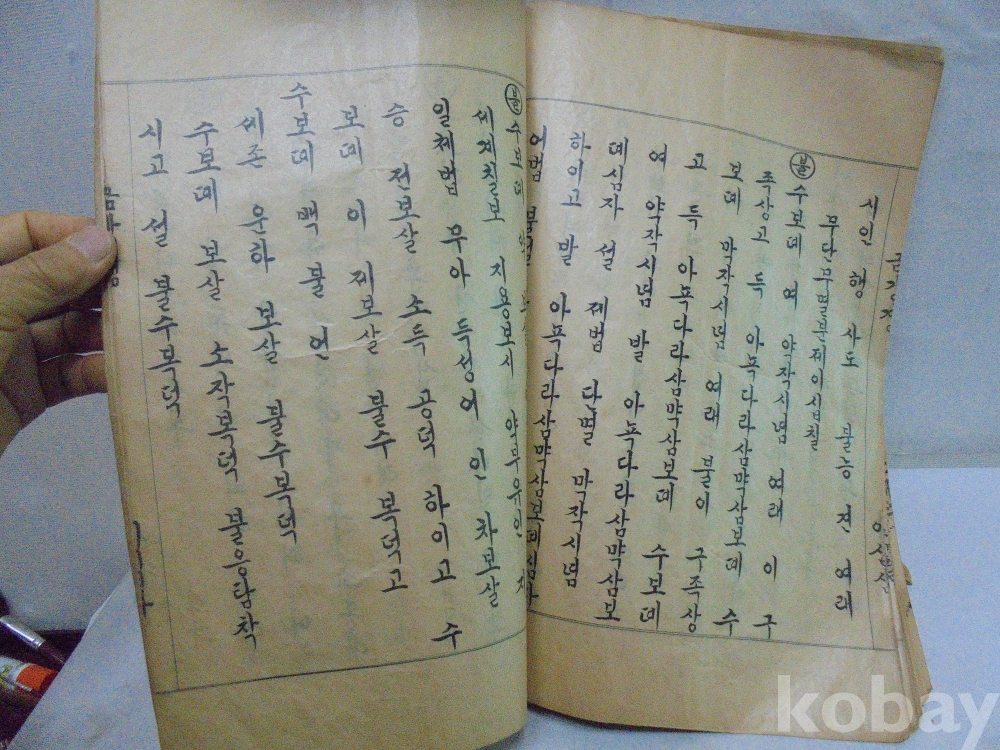 시인 행 사도 불능 견 여래
무단무멸분 제이십칠
불 수보데 여 약작시념 여래 이 구
족상고 득 아뇩다라삼먁삼보데 수
보데 막작시념 여래 불이 구족상
고 득 아뇩다라삼먁삼보데 수보데
여 약작시념 발 아뇩다라삼먁삼보
데심자 설 제법 다멸 막작시념
하이고 발 아뇩다라삼먁삼보데심자
어법 불설
불 수보데
세계칠보 지용보시 약부유인 지
일체법 무아 득성어 인 차보살
승 전보살 소득 공덕 하이고 수
보데 이 제보살 불수 복덕고
수보데 백 불 언
세존 운하 보살 불수복덕
수보데 보살 소작복덕 불응탐착
시고 설 불수복덕
kobay